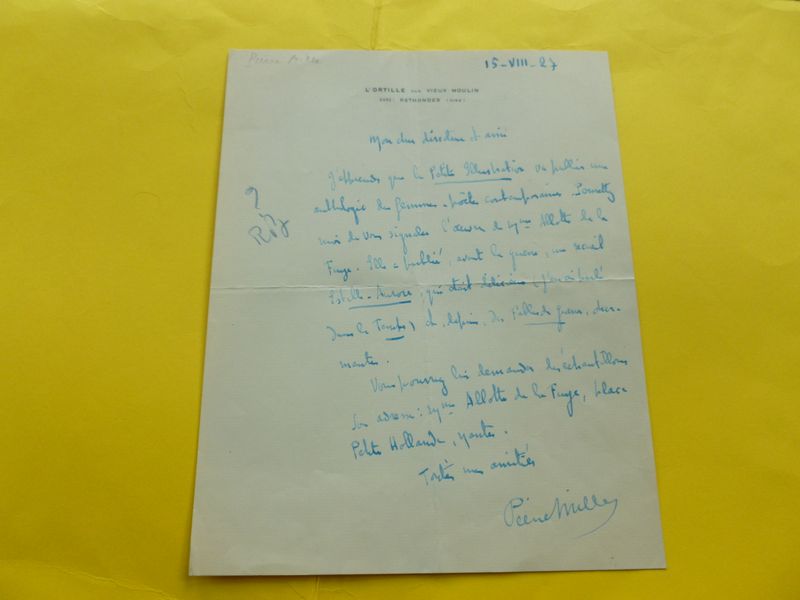 Pierre Mille
15-VIII-27
L'ORTILLE PAR VIEUX MOULIN
RETHONDES (OISE)
Mon cher directeur et ami
J'apprends que la Petite Illustration va publier une
anthologie des femmes-poètes contemporaines. Permettez
moi de vous signaler l'œuvre de Mme Allotte de la
Fuÿe. Elle a publié, avant la guerre, un recueil
Estelle-Aurore, qui était délicieux (j'en ai parlé
dans le Temps) et, depuis, des Fables de guerre, char-
mantes.
Vous pourrez lui demander des échantillons
Son adresse: Mme Allotte de la Fuÿe, place
Petite Hollande, Nantes.
Toutes mes amitiés
Pierre Mille